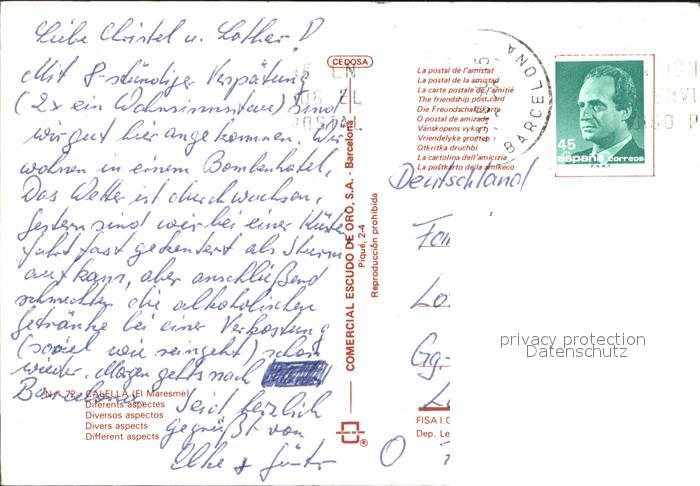 Liebe Christel u. Lothar!
Mit 8-stündiger Verspätung
(2x ein Wahnsinnstave) sind
wir gut hier angekommen. Wir
wohnen in einem Bombenhotel.
Das Wetter ist durchwachsen,
gestern sind wir bei einer Küsten
fahrt fast gekentert als Sturm
aufkam, aber anschließend
schmeckten die alkoholischen
Getränke bei einer Verkostung
(soviel wie reingeht) schon
wieder. Morgen gehts nach
Barcelona
Seid herzlich
gegrüßt von
Elke + Günter
N.º 72 CALELLA (El Maresme)
Diferents aspectes
Diversos aspectos
Divers aspects
Different aspects
CEDOSA
COMERCIAL ESCUDO DE ORO, S.A. - Barcelona
Piqué, 2-4
Reproducción prohibida
®
La postal de l'amistat
La postal de la amistad
La carte postale de l'amitié
The friendship postcard
Die Freundschaftskarte
O postal de amizade
Vänskapens vykort
Vriendelyke groeten
Otkritka druchbi
La cartolina dell'amicizia
La poštkarto de la amikeco
BARCELONA
45
PTA
españa correos
F.N.M.T.
Deutschland
FISA I.G
Dep. Le
privacy protection
Datenschutz